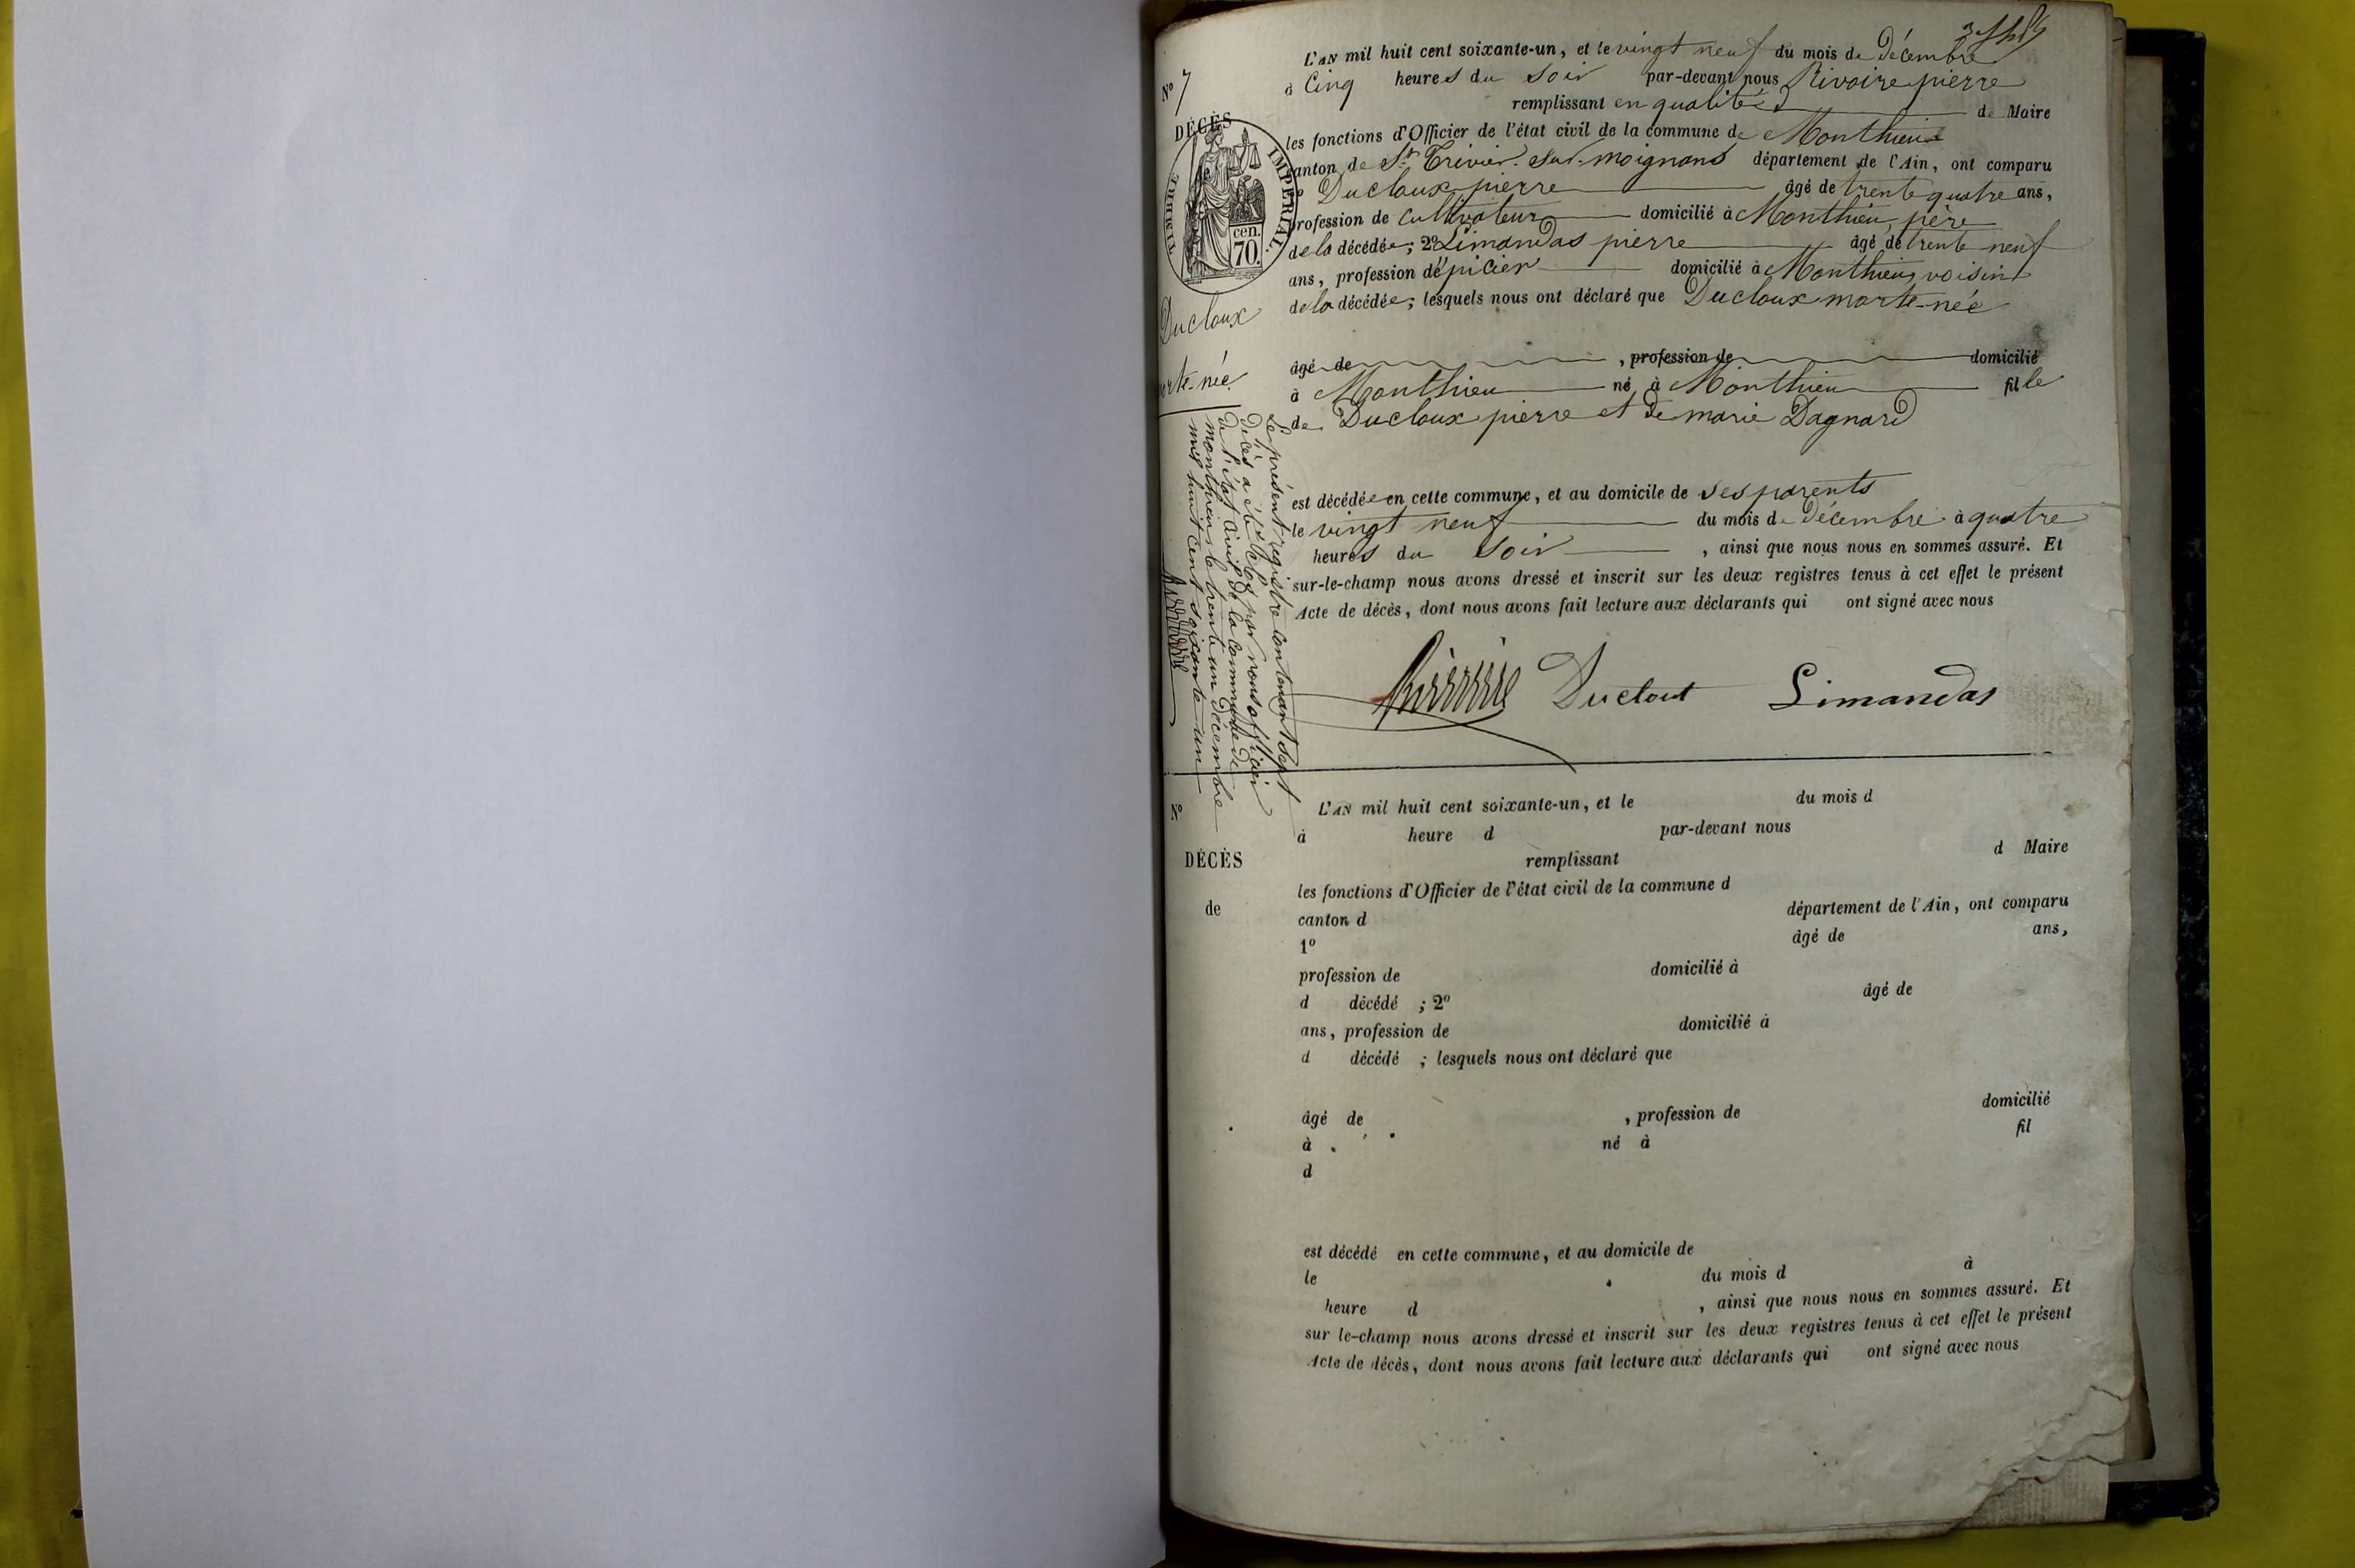 N° 7
DÉCÈS
TIMBRE IMPÉRIAL
cen.
70.
Ducloux
morte-née
L'AN mil huit cent soixante-un, et le vingt neuf du mois de Décembre
à Cinq heures du soir par-devant nous Rivoire pierre
remplissant en qualité d de Maire
les fonctions d'Officier de l'état civil de la commune de Monthieux
canton de St Trivier-sur-moignans département de l'Ain, ont comparu
Ducloux pierre âgé de trente quatre ans,
profession de cultivateur domicilié à Monthieu, père
de la décédée; 2° Limandas pierre âgé de trente neuf
ans, profession d'épicier domicilié à Monthieu, voisin
de la décédée; lesquels nous ont déclaré que Ducloux morte-née
âgé de , profession de domicilié
à Monthieu né à Monthieu fille
de Ducloux pierre et de marie Dagnard
est décédée en cette commune, et au domicile de ses parents
le vingt neuf du mois de Décembre à quatre
heures du soir , ainsi que nous nous en sommes assuré. Et
sur-le-champ nous avons dressé et inscrit sur les deux registres tenus à cet effet le présent
Acte de décès, dont nous avons fait lecture aux déclarants qui ont signé avec nous
Rivoire Duclout Limandas
Le présent registre contenant sept
décès a été clos par nous officier
de l'état civil de la commune de
monthieux le trente un décembre
mil huit cent soixante-un
Rivoire
N°
DÉCÈS
de
L'AN mil huit cent soixante-un, et le du mois d
à heure d par-devant nous
remplissant d Maire
les fonctions d'Officier de l'état civil de la commune d
canton d département de l'Ain, ont comparu
1° âgé de ans,
profession de domicilié à
d décédé ; 2° âgé de
ans, profession de domicilié à
d décédé ; lesquels nous ont déclaré que
âgé de , profession de domicilié
à né à fil
d
est décédé en cette commune, et au domicile de
le du mois d à
heure d , ainsi que nous nous en sommes assuré. Et
sur le-champ nous avons dressé et inscrit sur les deux registres tenus à cet effet le présent
Acte de décès, dont nous avons fait lecture aux déclarants qui ont signé avec nous